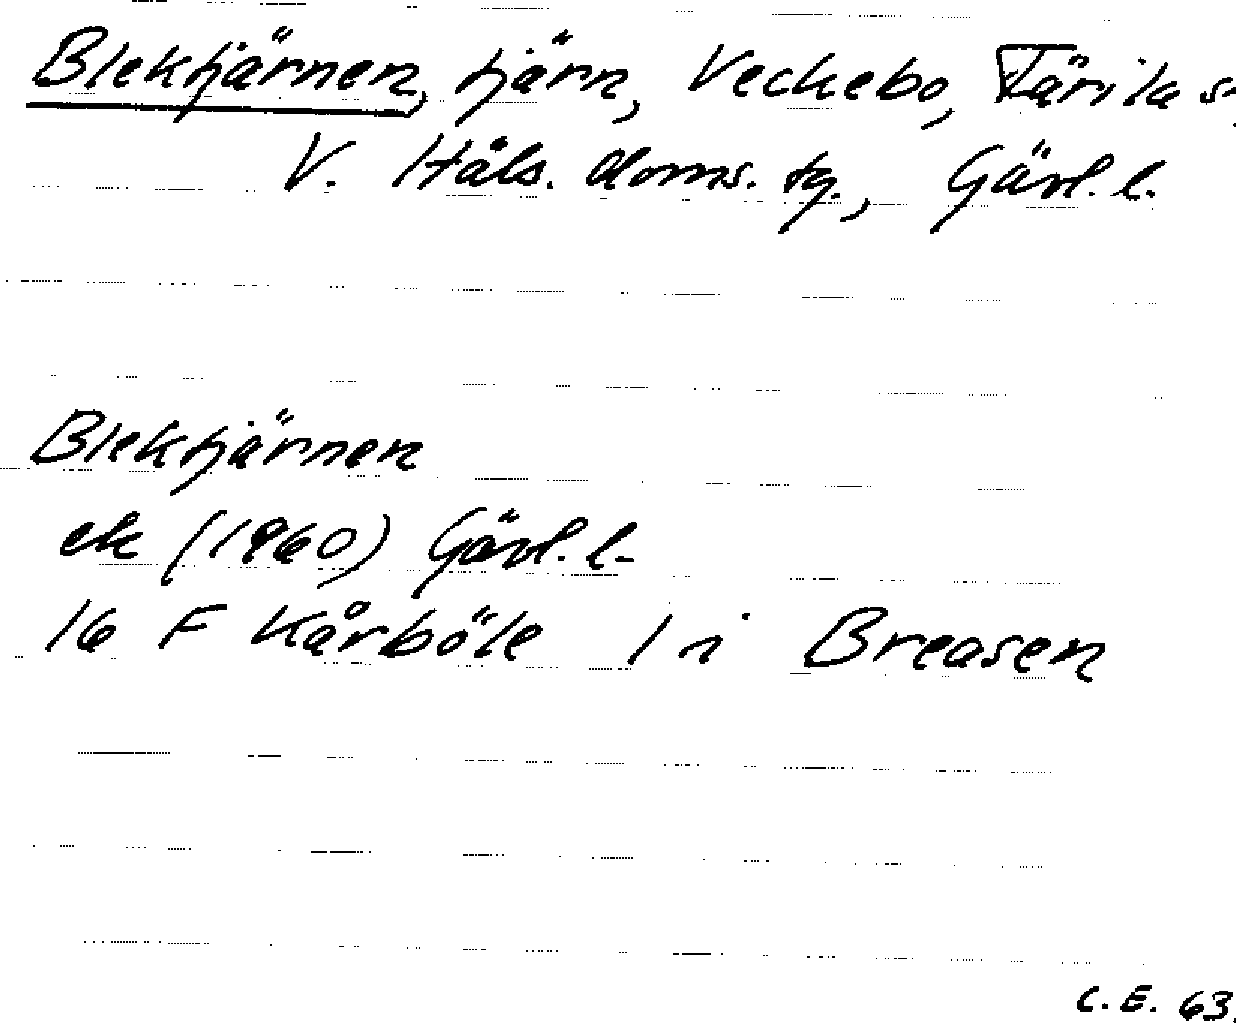 Blektjärnen, tjärn, Veckebo, Färila s.
V. Häls. doms. tg., Gävl. l.
Blektjärnen
ek (1960) Gävl. l.
16 F Kårböle 1 i Breasen
C.E. 63.